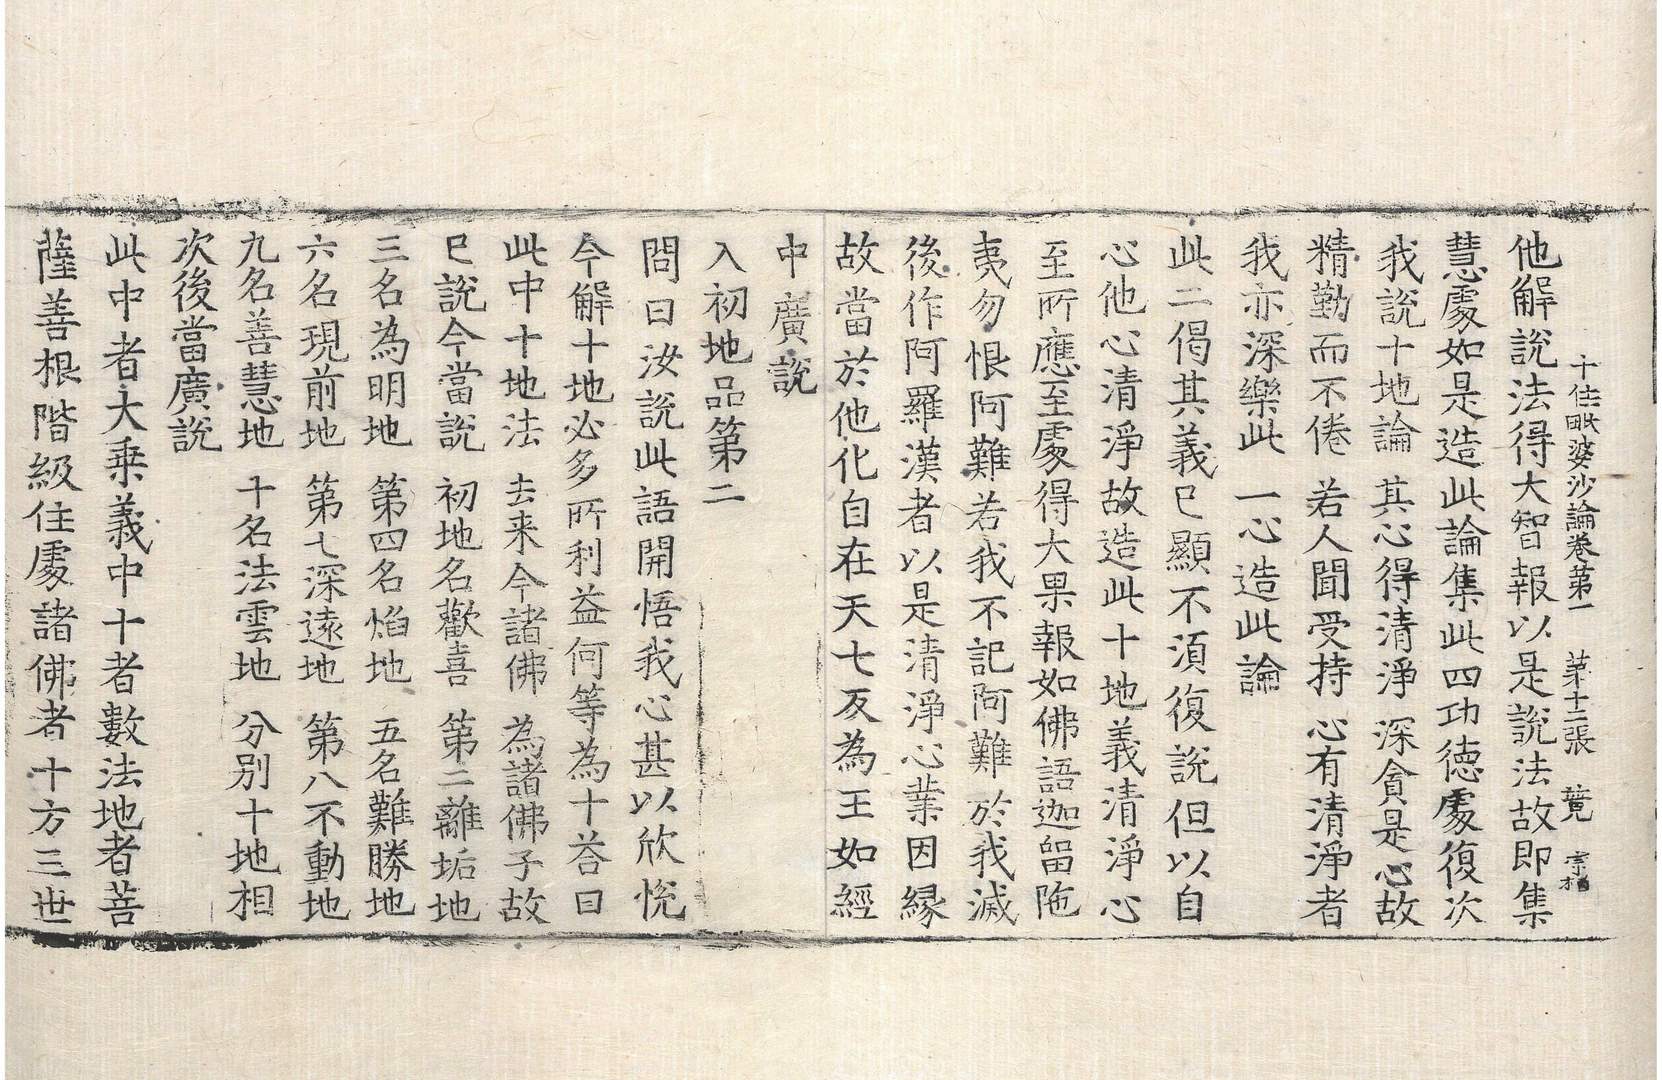 十住毗婆沙論卷第一 第十二張 競 宗相
他解說法得大智報以是說法故即集
慧處如是造此論集此四功德處復次
我說十地論 其心得清淨 深貪是心故
精勤而不倦 若人聞受持 心有清淨者
我亦深樂此 一心造此論
此二偈其義已顯不須復說但以自
心他心清淨故造此十地義清淨心
至所應至處得大果報如佛語迦留陁
夷勿恨阿難若我不記阿難於我滅
後作阿羅漢者以是清淨心業因緣
故當於他化自在天七反為王如經
中廣說
入初地品第二
問曰汝說此語開悟我心甚以欣悅
今解十地必多所利益何等為十答曰
此中十地法 去来今諸佛 為諸佛子故
已說今當說 初地名歡喜 第二離垢地
三名為明地 第四名焰地 五名難勝地
六名現前地 第七深遠地 第八不動地
九名善慧地 十名法雲地 分別十地相
次後當廣說
此中者大乗義中十者數法地者菩
薩善根階級住處諸佛者十方三世